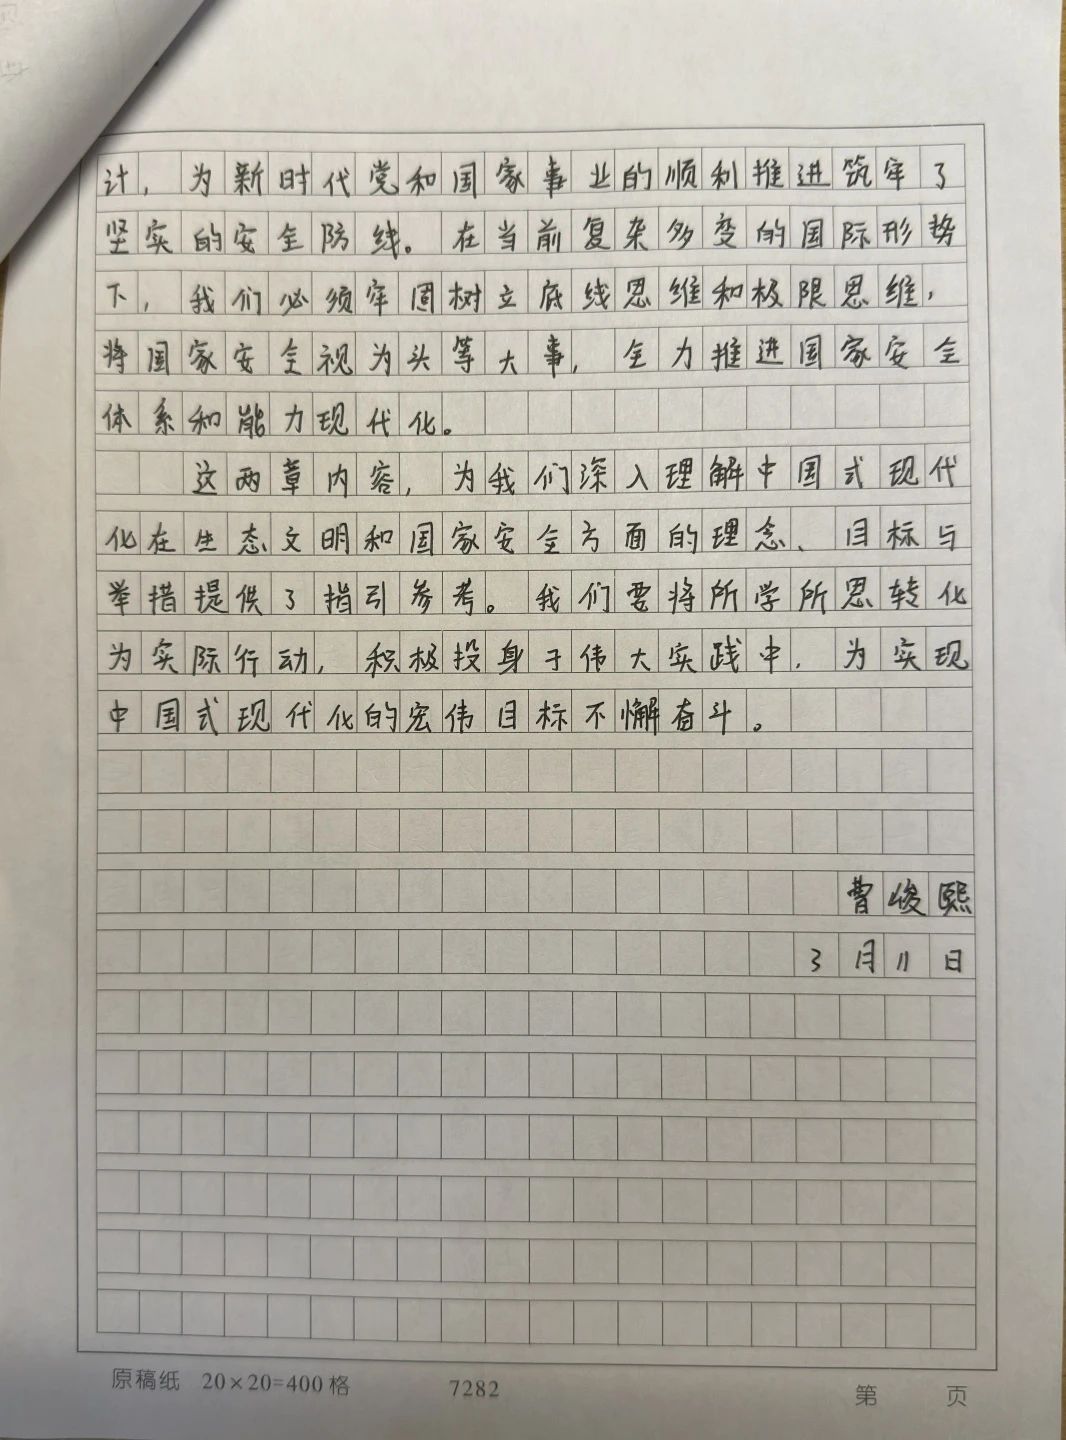 计，为新时代党和国家事业的顺利推进筑牢了
坚实的安全防线。在当前复杂多变的国际形势
下，我们必须牢固树立底线思维和极限思维，
将国家安全视为头等大事，全力推进国家安全
体系和能力现代化。
这两章内容，为我们深入理解中国式现代
化在生态文明和国家安全方面的理念、目标与
举措提供了指引参考。我们要将所学所思转化
为实际行动，积极投身于伟大实践中，为实现
中国式现代化的宏伟目标不懈奋斗。
曹俊熙
3月11日
原稿纸 20×20=400格 7282 第 页